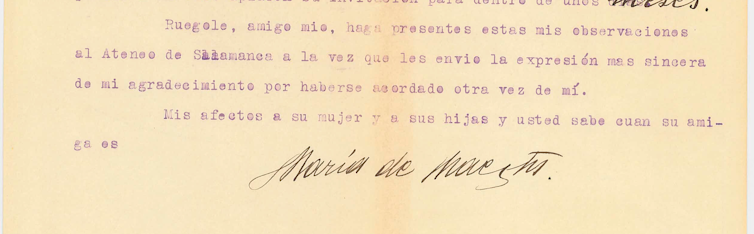 invitación para dentro de unos meses.
Ruegole, amigo mio, haga presentes estas mis observaciones
al Ateneo de Salamanca a la vez que les envio la expresión mas sincera
de mi agradecimiento por haberse acordado otra vez de mí.
Mis afectos a su mujer y a sus hijas y usted sabe cuan su ami-
ga es
María de Maeztu.